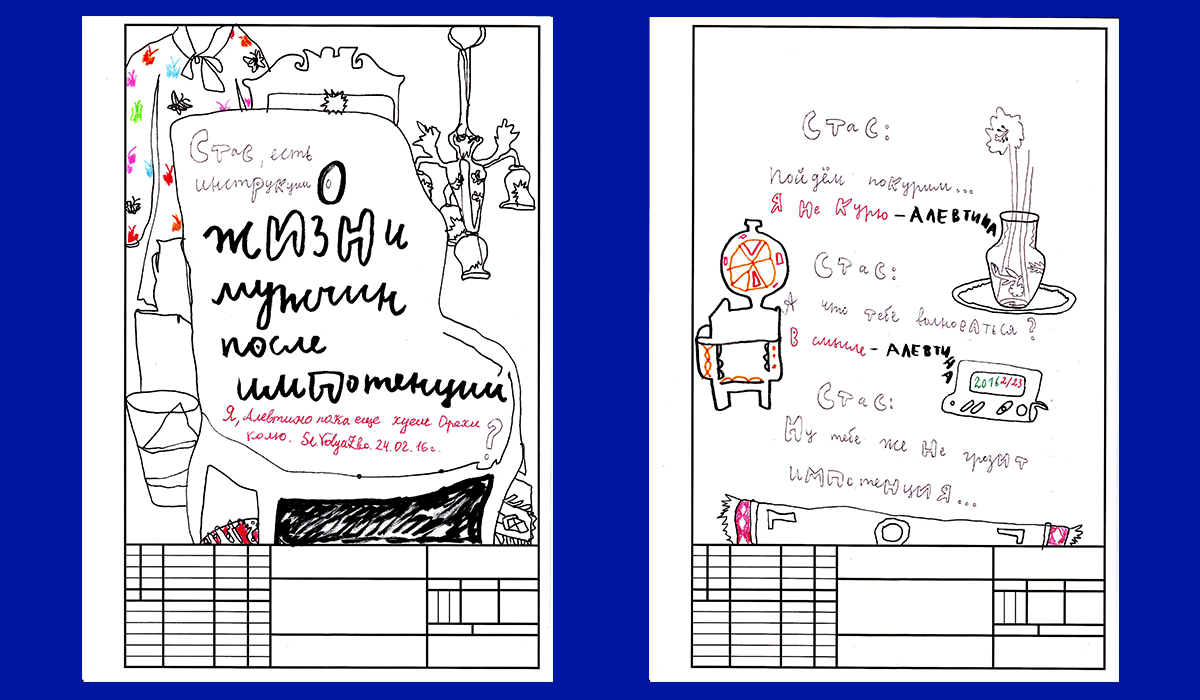 Стас, есть
инструкции о
О
ЖИЗНИ
мужчин
после
импотенции
?
Я, Алевтина пока ещё хуем Орехи
колю. St. VolyaZko. 24.02.16г.
Стас:
Пойдём покурим...
Я не курю - АЛЕВТИНА
Стас:
А что тебе волноваться?
В смысле - АЛЕВТИНА
20162/23
Стас:
Ну тебе же не грозит
импотенция...